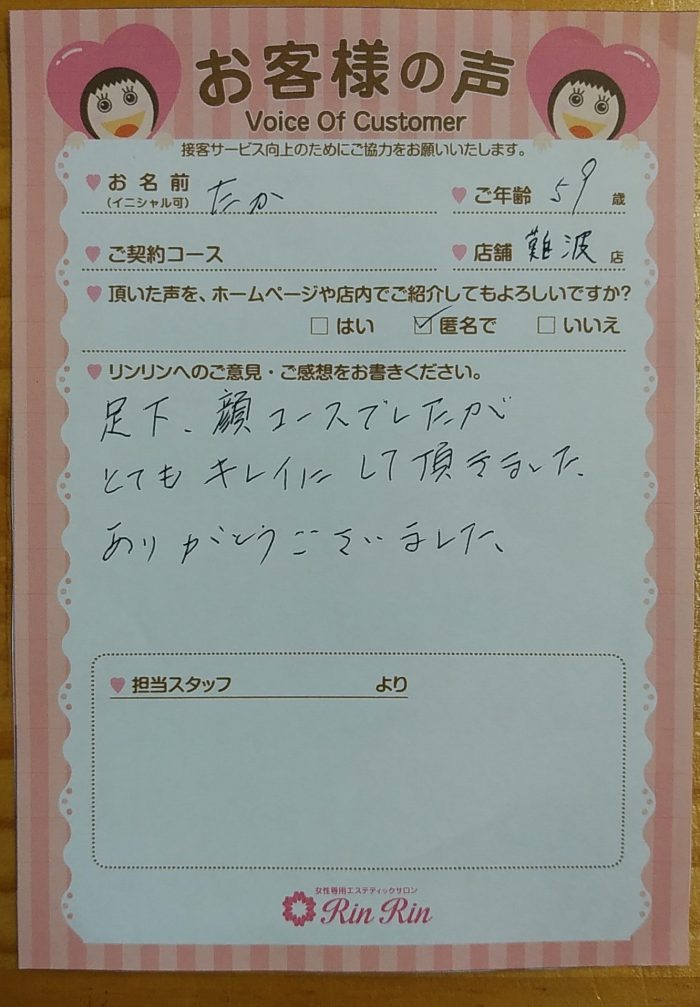 お客様の声
Voice Of Customer
接客サービス向上のためにご協力をお願いいたします。
お名前 たか ご年齢 59 歳
(イニシャル可)
ご契約コース 店舗 難波 店
頂いた声を、ホームページや店内でご紹介してもよろしいですか?
はい 匿名で いいえ
リンリンへのご意見・ご感想をお書きください。
足下、顔コースでしたが
とてもキレイにして頂きました。
ありがとうございました。
担当スタッフ より
女性専用エステティックサロン
Rin Rin